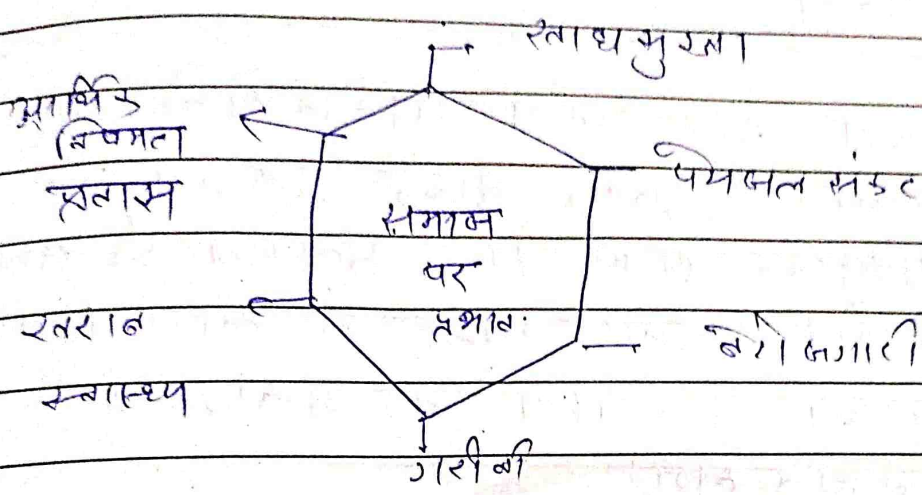 खाद्य सुरक्षा
आर्थिक
विषमता
प्रवास
पेयजल संकट
समाज
पर
प्रभाव
खराब
स्वास्थ्य
बेरोजगारी
गरीबी